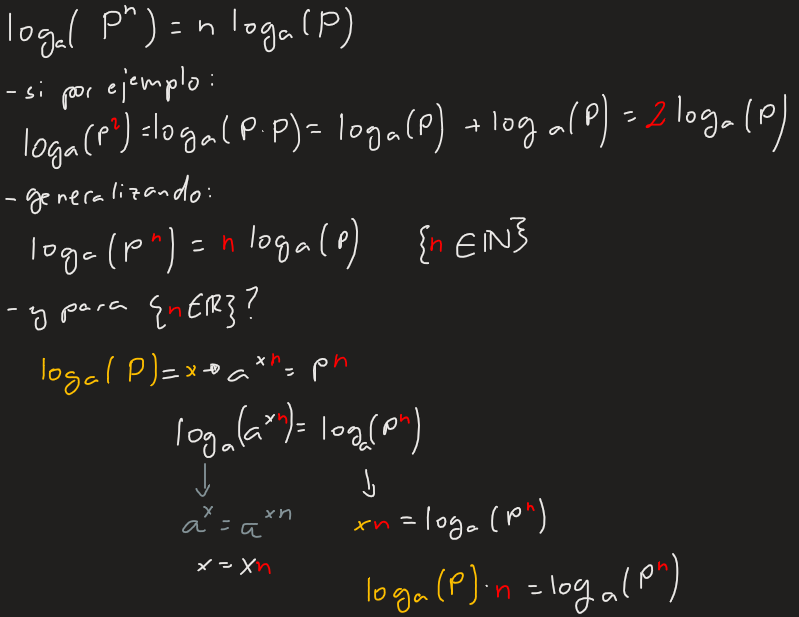 logₐ( Pⁿ) = n logₐ(P)
- si por ejemplo:
logₐ(P²) = logₐ(P·P) = logₐ(P) + logₐ(P) = 2 logₐ(P)
- generalizando:
logₐ(Pⁿ) = n logₐ(P) {n ∈ ℕ}
- y para {n ∈ ℝ}?
logₐ(P) = x → aˣⁿ = Pⁿ
logₐ(aˣⁿ) = logₐ(Pⁿ)
↓ ↓
aˣ = aˣⁿ xn = logₐ(Pⁿ)
x = xn
logₐ(P)·n = logₐ(Pⁿ)